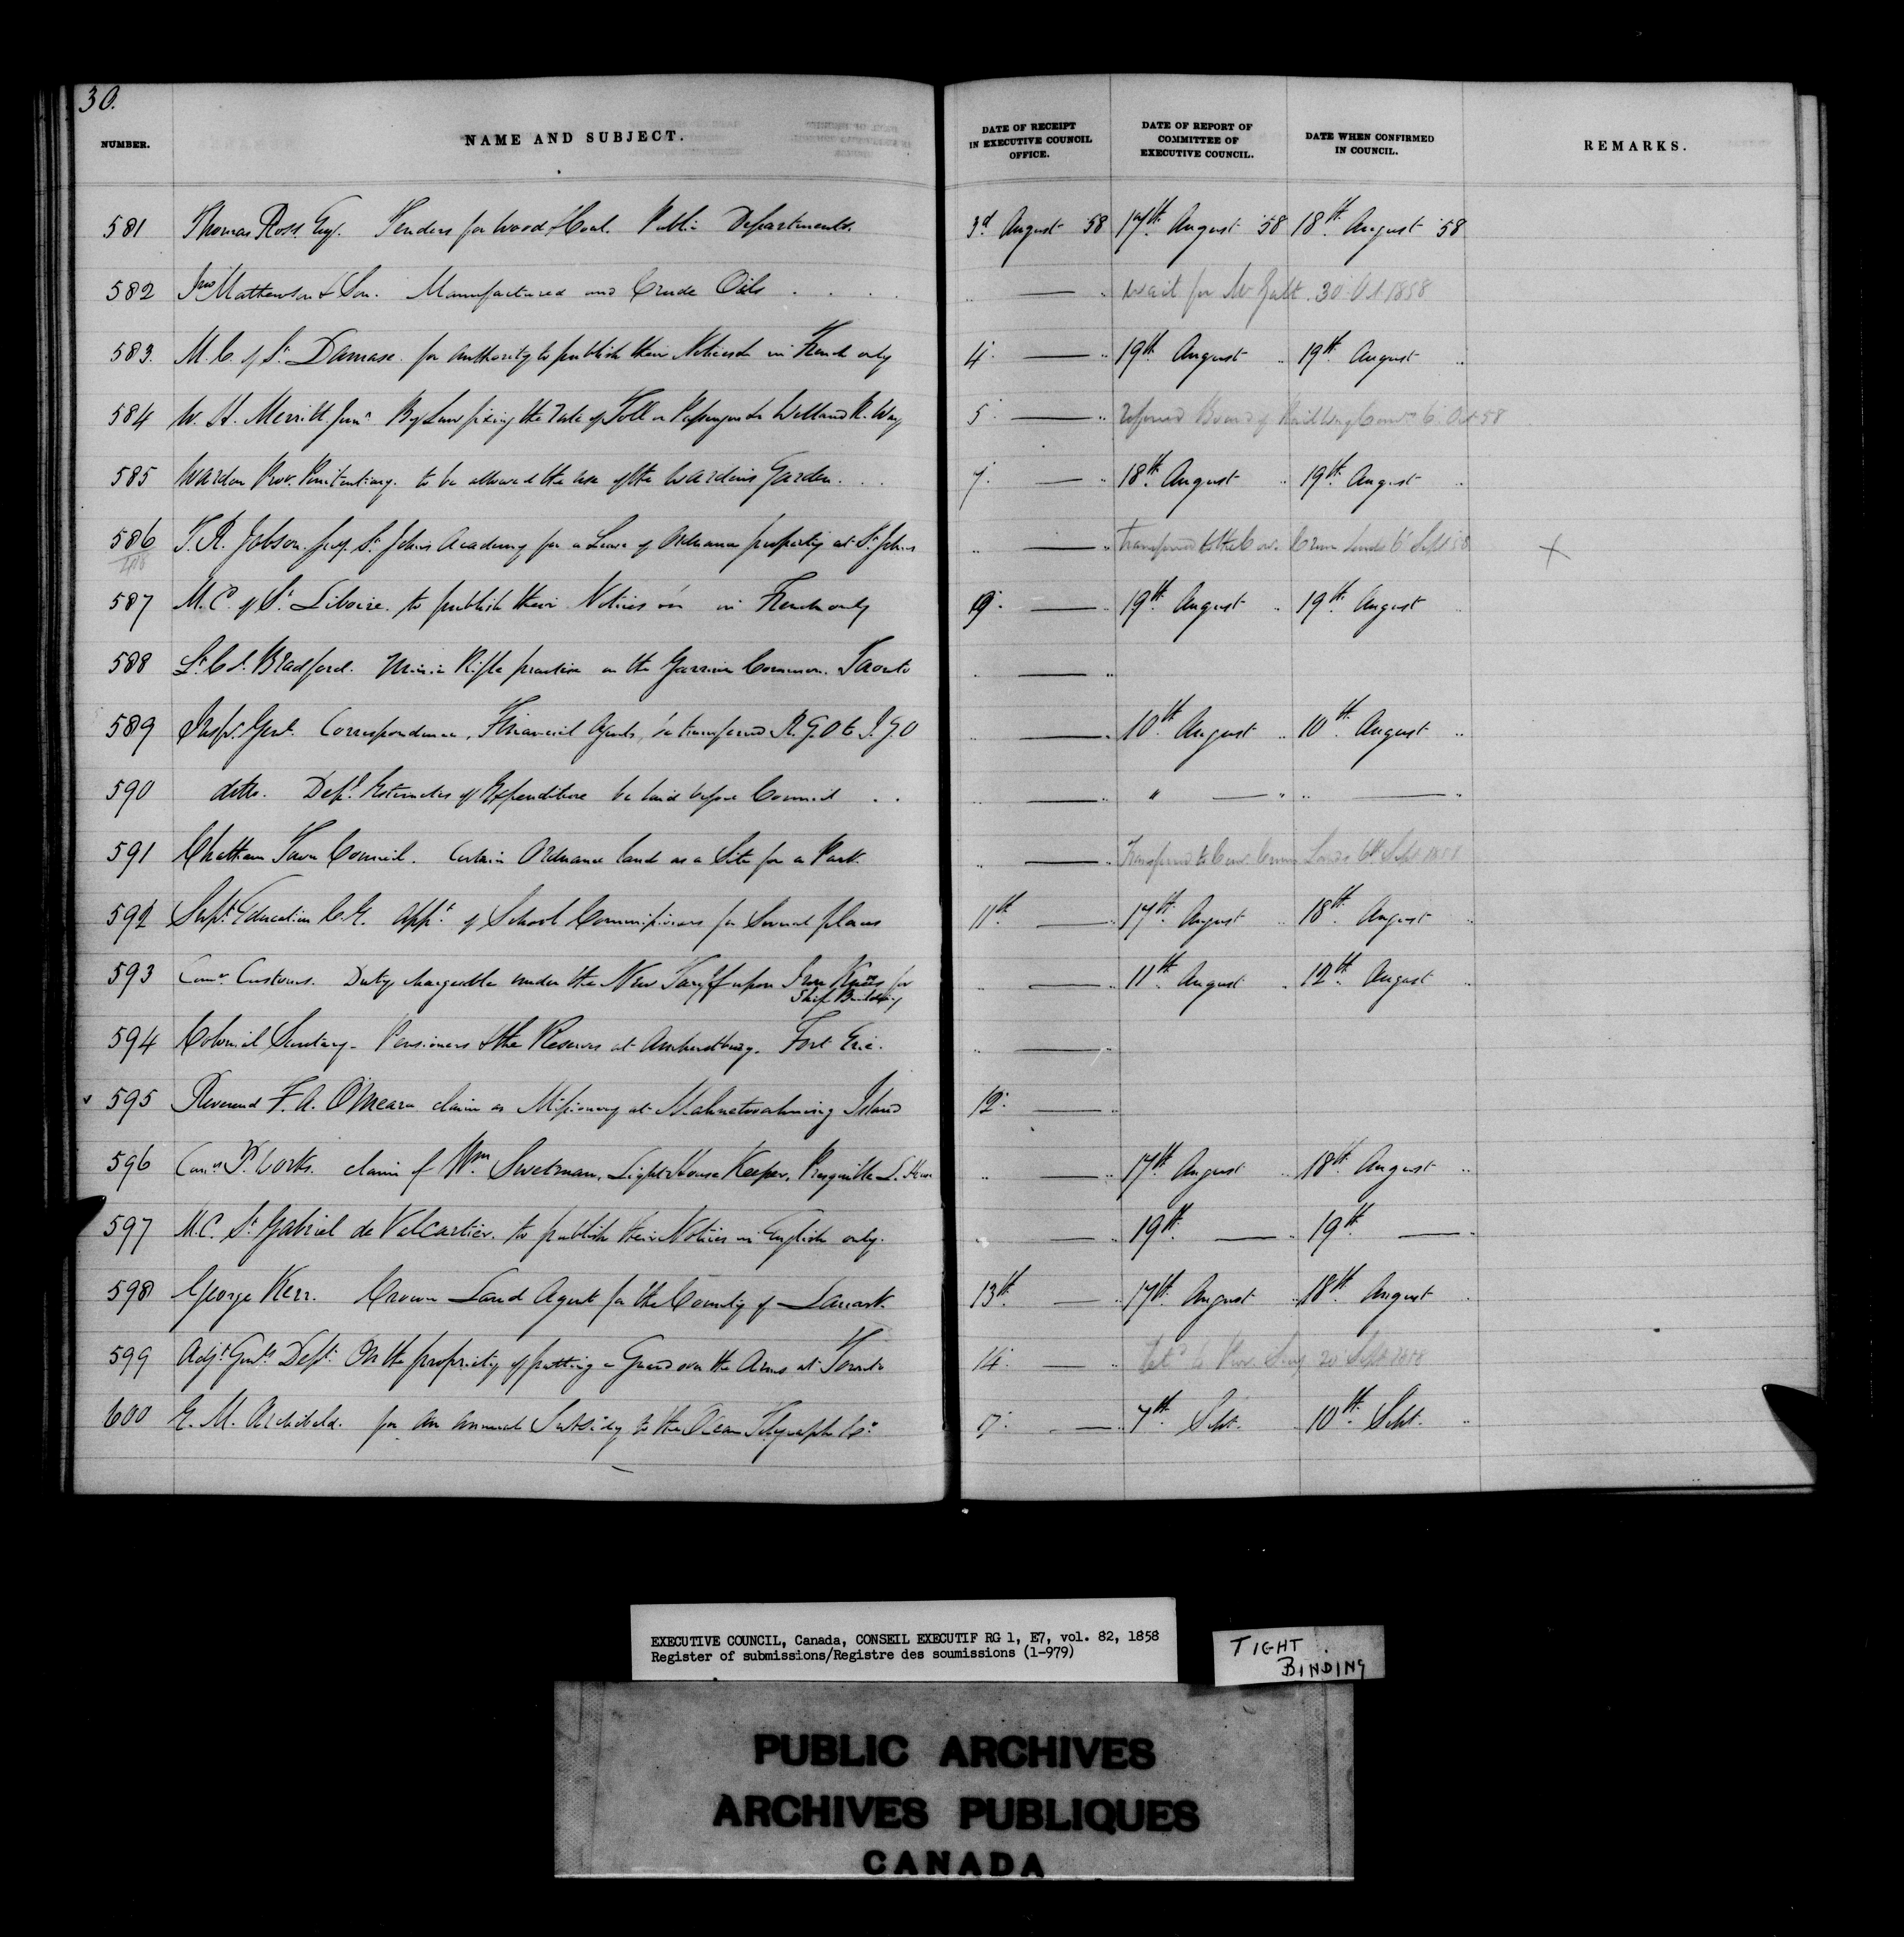 30.
NUMBER. NAME AND SUBJECT. DATE OF RECEIPT IN EXECUTIVE COUNCIL OFFICE. DATE OF REPORT OF COMMITTEE OF EXECUTIVE COUNCIL. DATE WHEN CONFIRMED IN COUNCIL. REMARKS.
581 Thomas Ross Esq. Tenders for Wood & Coal. Public Departments. 3d August 58 17th August 58 18th August 58
582 Jno Mathewson & Son. Manufactured and Crude Oils . . . . " — " wait for Mr Galt. 30 Oct 1858
583. M.C. of St Damase. for authority to publish their Notices in French only 4. — " 19th August " 19th August "
584 W. H. Merritt Junr By Law fixing the rate of Toll on Passengers Welland R. Way 5 — " referred Board of Railway Commrs 6 Oct 58
585 Warden Prov. Penitentiary. to be allowed the use of the Wardens Garden. . . 7. — " 18th August " 19th August "
586 T. R. Jobson. St Johns Academy for a Lease of Ordnance property at St Johns " — " Transferred to the Com. Crown Lands 6 Sept 58 ×
587 M.C. of St Liboire. to publish their Notices in French only 9. — " 19th August " 19th August "
588 Lt Col. Bradford. Minie Rifle practice on the Garrison Common. Toronto " — "
589 Inspr Genl. Correspondence, Financial Agents, be transferred R.G.O to I.G.O " — " 10th August " 10th August "
590 ditto. Depl Estimates of Expenditure be laid before Council . . " — " " — " " — "
591 Chatham Town Council. Certain Ordnance land as a Site for a Park. " — " Transferred to Com. Crown Lands 6th Sept 1858
592 Supt Education C.E. appt of School Commissioners for Several places 11th — " 17th August " 18th August "
593 Comr Customs. Duty chargeable under the New Tariff upon Iron Knees for Ship Building " — " 11th August " 12th August "
594 Colonial Secretary - Pensioners & the Reserves at Amherstburg. Fort Erie. " — "
595 Reverend F. A. O'Meara claim as Missionary at Mahnetooahning Island 12. — "
596 Comrs P. Works. claim of Wm Swetman, Light House Keeper, Presquille L. House " — " 17th August " 18th August "
597 M.C. St Gabriel de ValCartier. to publish their Notices in English only. " — " 19th — " 19th — "
598 George Kerr. Crown Land Agent for the County of Lanark. 13th — " 17th August " 18th August "
599 Adjt Genls Dept. On the propriety of putting a Guard over the Arms at Toronto 14. — " Retd to Prov. Secy 20 Sept 1858
600 E. M. Archibald. for an annual Subsidy to the Ocean Telegraph Co. — " 7th Sept. 10th Sept. "
EXECUTIVE COUNCIL, Canada, CONSEIL EXECUTIF RG 1, E7, vol. 82, 1858
Register of submissions/Registre des soumissions (1-979)
TIGHT
BINDING
PUBLIC ARCHIVES
ARCHIVES PUBLIQUES
CANADA